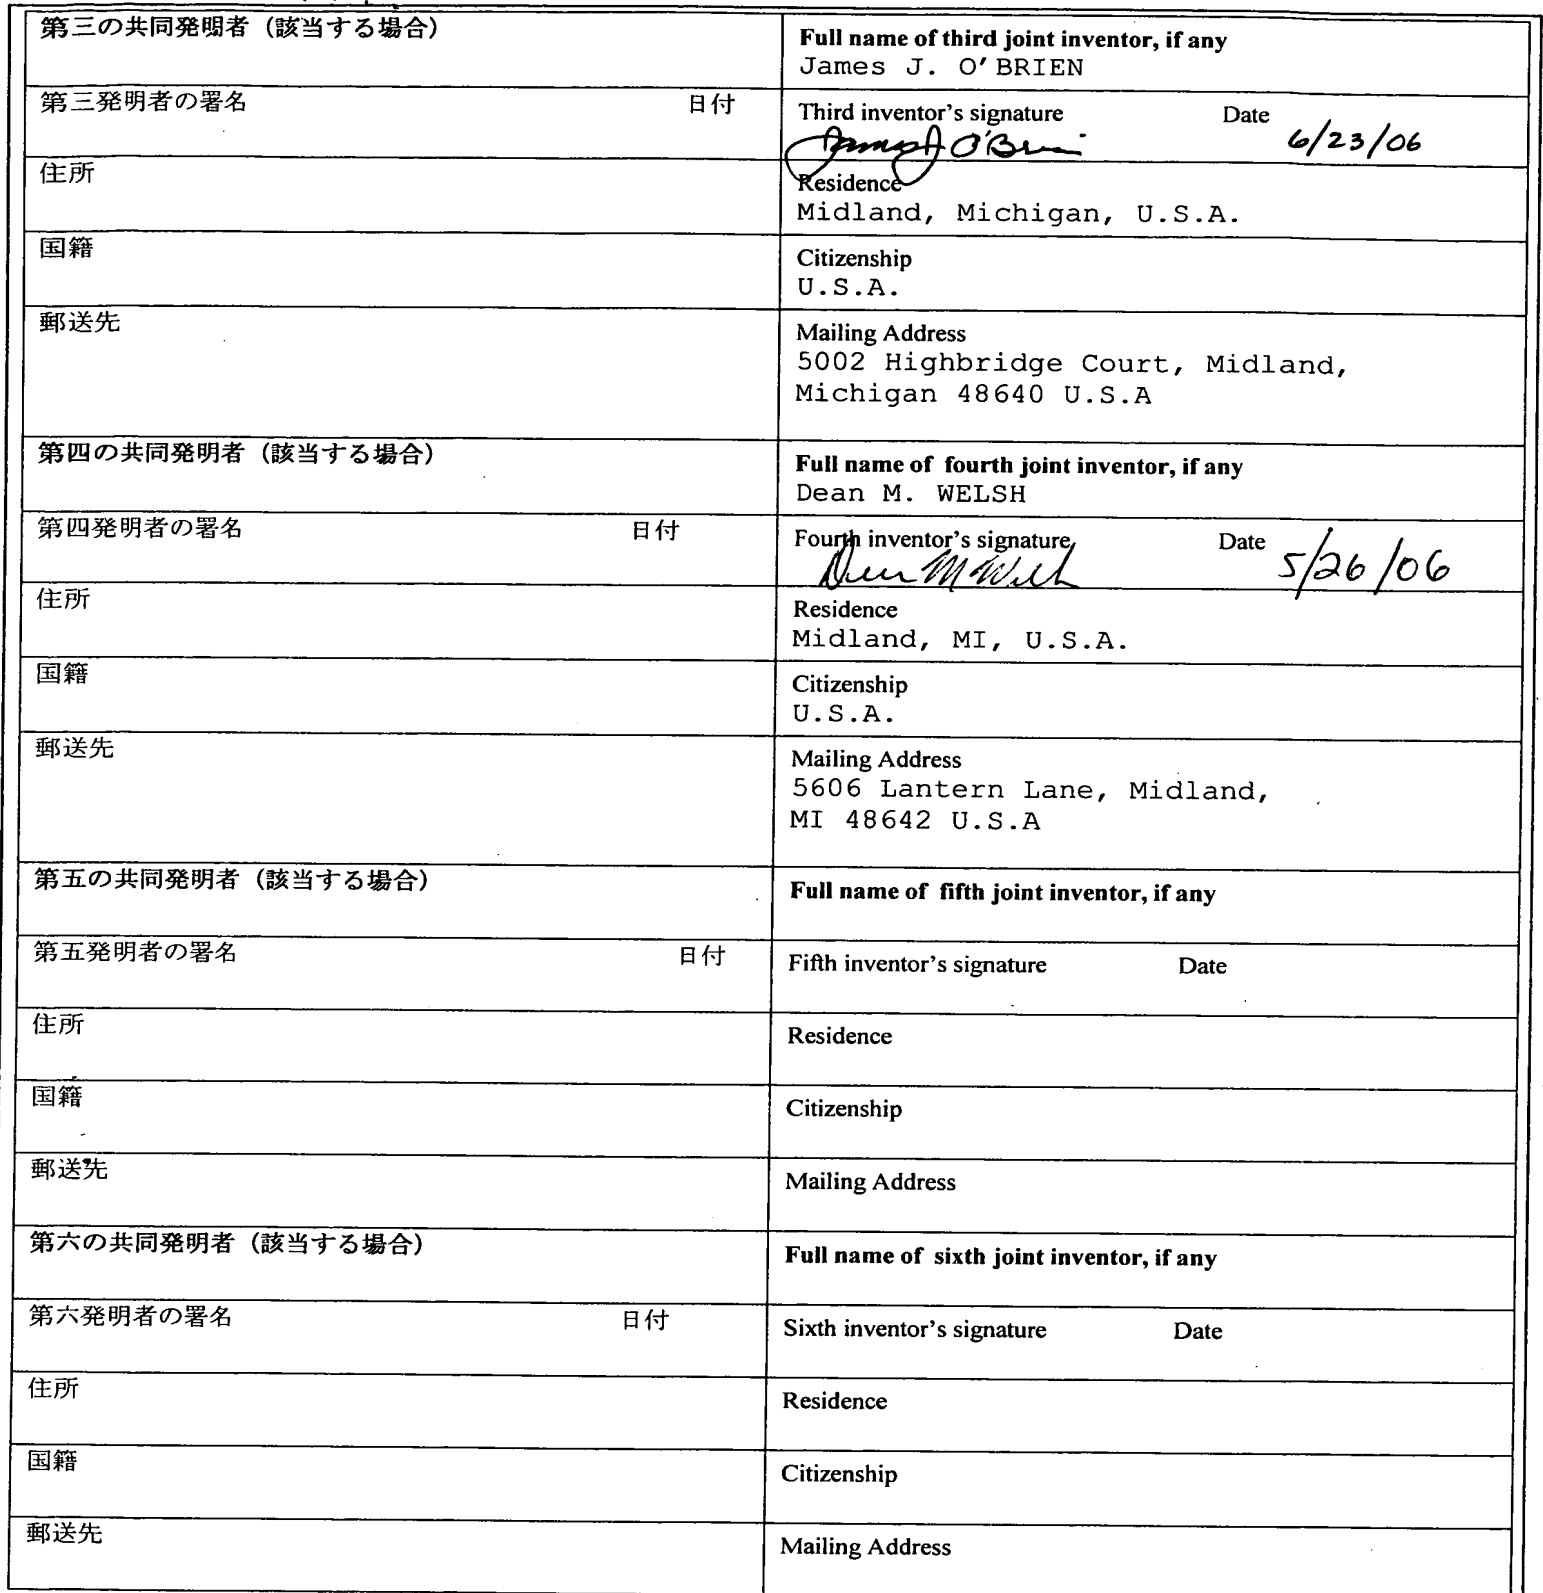 第三の共同発明者（該当する場合）
Full name of third joint inventor, if any
James J. O'BRIEN
第三発明者の署名 日付
Third inventor's signature Date
James J O'Brien 6/23/06
住所
Residence
Midland, Michigan, U.S.A.
国籍
Citizenship
U.S.A.
郵送先
Mailing Address
5002 Highbridge Court, Midland,
Michigan 48640 U.S.A
第四の共同発明者（該当する場合）
Full name of fourth joint inventor, if any
Dean M. WELSH
第四発明者の署名 日付
Fourth inventor's signature Date
Dean M Welsh 5/26/06
住所
Residence
Midland, MI, U.S.A.
国籍
Citizenship
U.S.A.
郵送先
Mailing Address
5606 Lantern Lane, Midland,
MI 48642 U.S.A
第五の共同発明者（該当する場合）
Full name of fifth joint inventor, if any
第五発明者の署名 日付
Fifth inventor's signature Date
住所
Residence
国籍
Citizenship
郵送先
Mailing Address
第六の共同発明者（該当する場合）
Full name of sixth joint inventor, if any
第六発明者の署名 日付
Sixth inventor's signature Date
住所
Residence
国籍
Citizenship
郵送先
Mailing Address